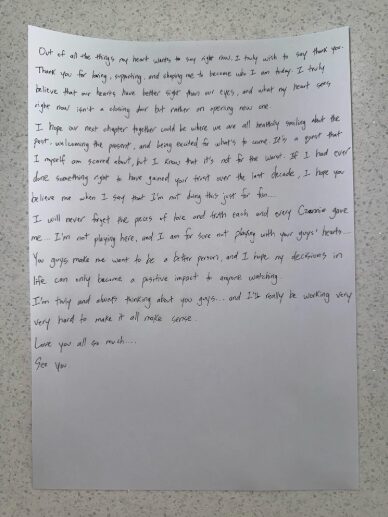 Out of all the things my heart wants to say right now. I truly wish to say thank you.
Thank you for being, supporting, and shaping me to become who I am today. I truly
believe that our hearts have better sight than our eyes, and what my heart sees
right now isn't a closing door but rather an opening new one.
I hope our next chapter together could be where we are all healthily smiling about the
past, welcoming the present, and being excited for what's to come. It's a quest that
I myself am scared about, but I know that it's not for the worst. If I had ever
done something right to have gained your trust over the last decade, I hope you
believe me when I say that I'm not doing this just for fun...
I will never forget the pieces of love and truth each and every gave
me... I'm not playing here, and I am for sure not playing with your guys' hearts...
You guys make me want to be a better person, and I hope my decisions in
life can only become a positive impact to anyone watching.
I'm truly and always thinking about you guys... and I'll really be working very
very hard to make it all make sense.
Love you all so much....
See you